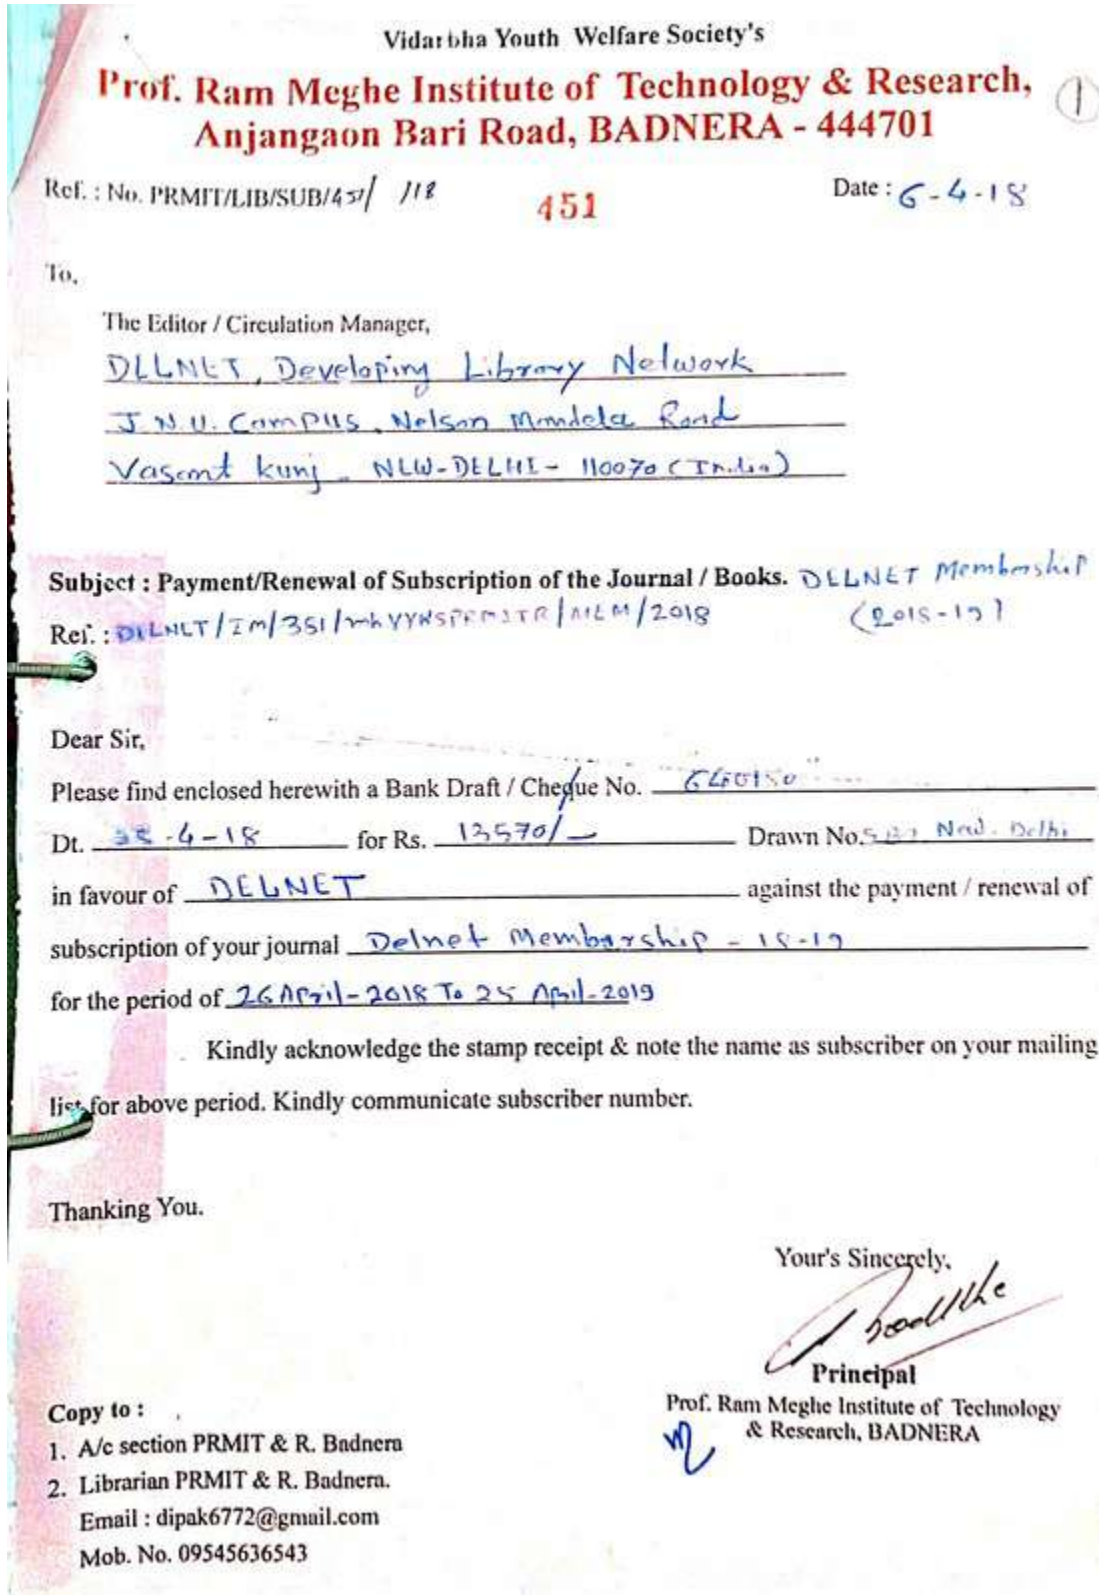 Vidarbha Youth Welfare Society's
Prof. Ram Meghe Institute of Technology & Research,
Anjangaon Bari Road, BADNERA - 444701
1
Ref. : No. PRMIT/LIB/SUB/451/ /18
451
Date : 6-4-18
To,
The Editor / Circulation Manager,
DELNET, Developing Library Network
J.N.U. Campus, Nelson Mandela Road
Vasant Kunj - NEW-DELHI - 110070 (India)
Subject : Payment/Renewal of Subscription of the Journal / Books. DELNET Membership
(2018-19)
Ref. : DELNET/IM/351/
Dear Sir,
Please find enclosed herewith a Bank Draft / Cheque No.
Dt. -4-18 for Rs. 13570/- Drawn No. New Delhi
in favour of DELNET against the payment / renewal of
subscription of your journal Delnet Membership - 18-19
for the period of 26 April-2018 To 25 April-2019
Kindly acknowledge the stamp receipt & note the name as subscriber on your mailing
list for above period. Kindly communicate subscriber number.
Thanking You.
Your's Sincerely,
Principal
Prof. Ram Meghe Institute of Technology
& Research, BADNERA
Copy to :
1. A/c section PRMIT & R. Badnera
2. Librarian PRMIT & R. Badnera.
Email : dipak6772@gmail.com
Mob. No. 09545636543